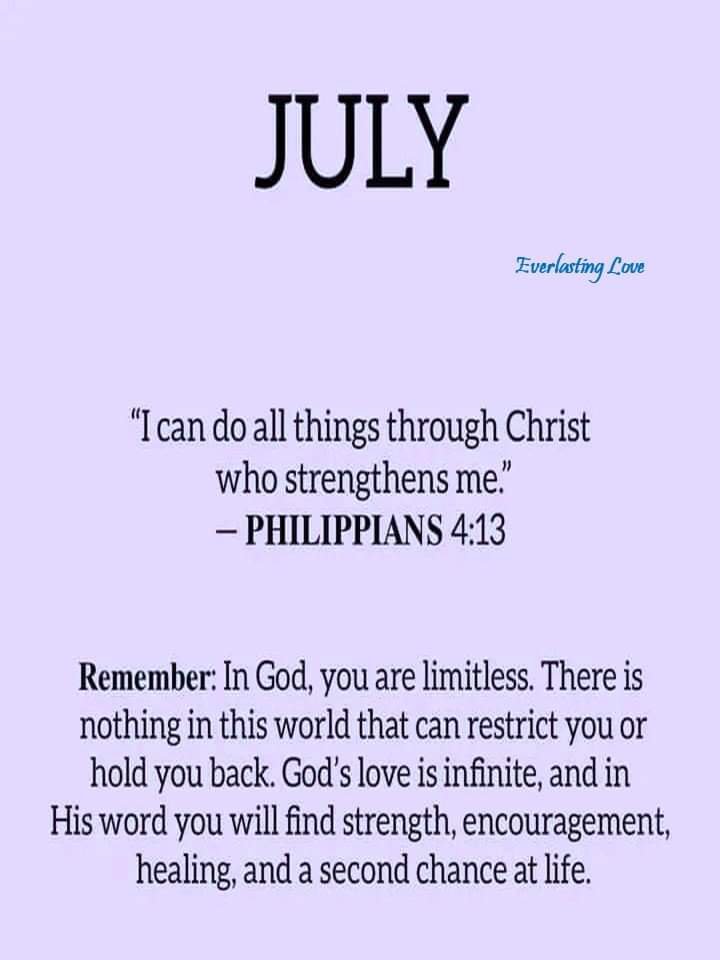 JULY
Everlasting Love
“I can do all things through Christ
who strengthens me.”
– PHILIPPIANS 4:13
Remember: In God, you are limitless. There is
nothing in this world that can restrict you or
hold you back. God’s love is infinite, and in
His word you will find strength, encouragement,
healing, and a second chance at life.